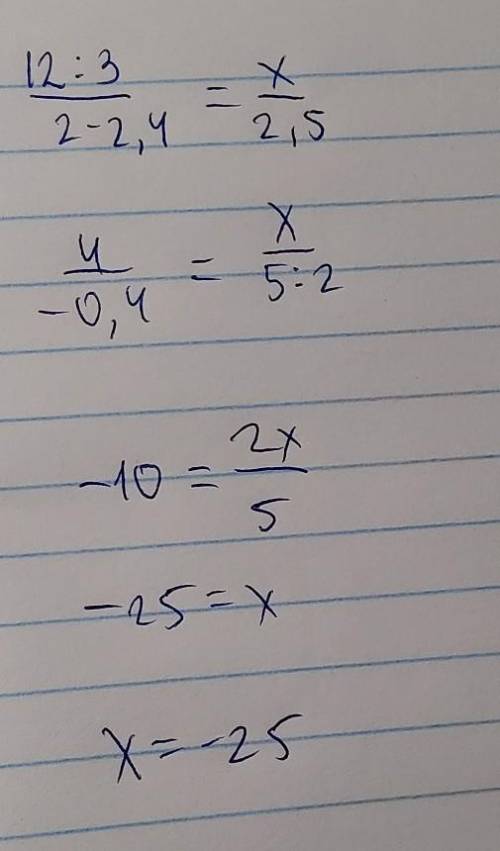 12:3 / 2-2,4 = x / 2,5
4 / -0,4 = x / 5:2
-10 = 2x / 5
-25 = x
x = -25